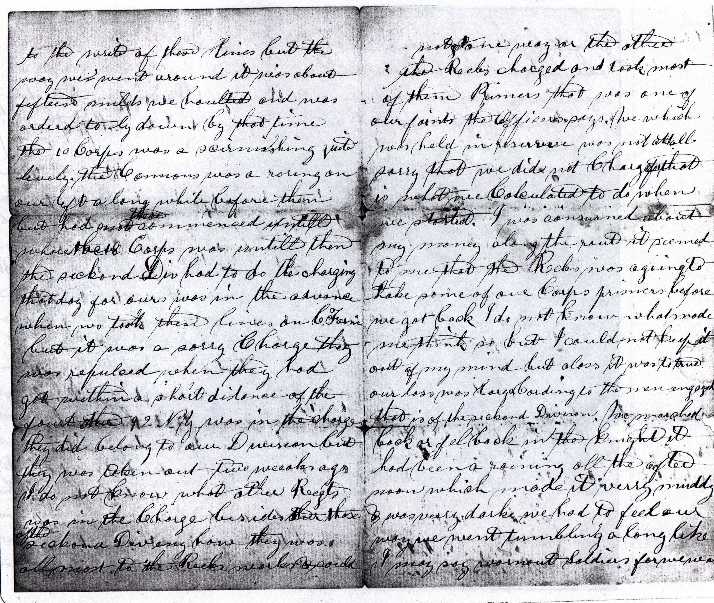 to the write of those lines but the
way we went around it was about
fifteen miles we haulted and was
orderd to ly down by that time
the 10 Corps was a scirmishing quite
lively, the Cannons was a roreng on
our left a long while before them
but had not commenced untill
the Corps was untill then
the seckond Div had to do the charging
that day for ours was in the advance
when we took them lines on
but it was a sorry Charge they
was repulsed when they had
got within a short distance of the
fourt the 92 N Y was in the charge
they did belong to our Division but
they was taken out two weaks ago
I do not know what other Regts
was in the Charge besides the
seckond Division, how they was
all most to the Rebs works could
not one way or the other
the Rebs charged and took most
of them Prisners that was one of
our faults the officers says, we which
was held in reserve was not atall
sorry that we did not Charge that
is what we Calculated to do when
we started. I was conserned about
my money along the rout it seemed
to me that the Rebs was agoing to
take some of our Corps prisners before
we got back I do not know what made
me think so but I could not keep it
out of my mind but alass it was to true
our loss was large to the men engaged
that is of the seckond Division. We marched
back or fel back in the knight it
had been a raining all the after
noon which made it verry muddy
& was verry darke we had to feel our
way we went tumbling a long like
I may say wornout Soldiers for we was